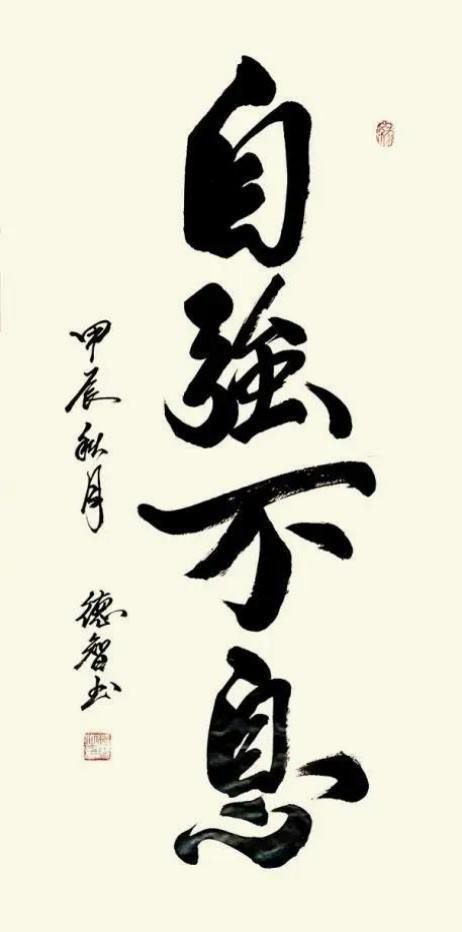 自強不息
甲辰秋月 德智书